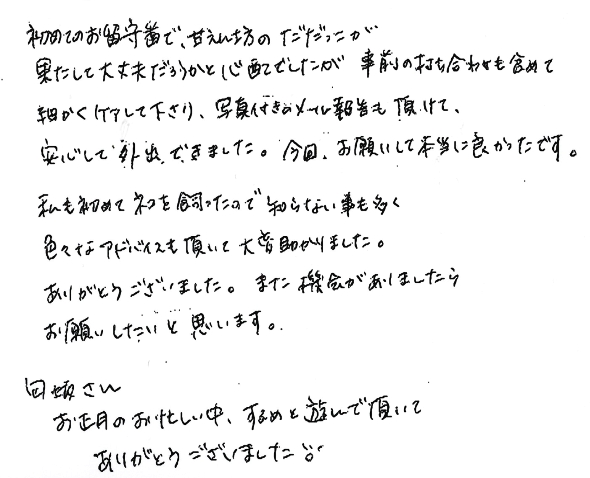 初めてのお留守番で、甘えん坊の だだっこが
果たして大丈夫だろうかと心配でしたが 事前の打ち合わせも含めて
細かくケアして下さり、写真付きのメール報告も頂けて、
安心して外出できました。今回、お願いして本当に良かったです。
私も初めてネコを飼ったので知らない事も多く
色々なアドバイスも頂いて大変助かりました。
ありがとうございました。また機会がありましたら
お願いしたいと思います。
さん
お正月のお忙しい中、するめと遊んで頂いて
ありがとうございました